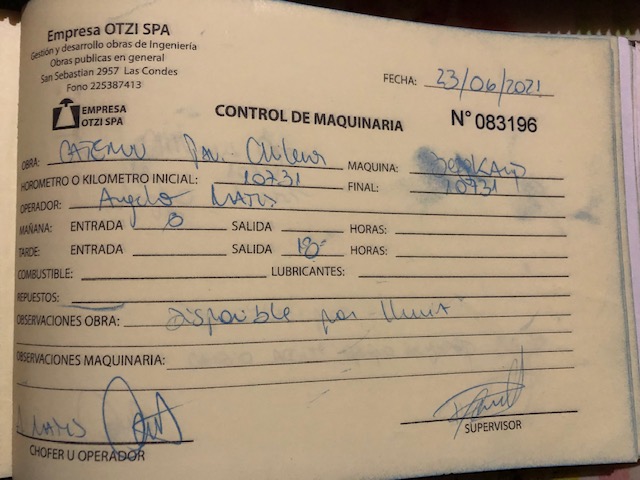 Empresa OTZI SPA
Gestión y desarrollo obras de Ingeniería
Obras públicas en general
San Sebastian 2957 Las Condes
Fono 225387413
FECHA: 23/06/2021
EMPRESA
OTZI SPA
CONTROL DE MAQUINARIA N° 083196
OBRA: Chilena MAQUINA:
HOROMETRO O KILOMETRO INICIAL: 10731 FINAL: 10731
OPERADOR: Angelo
MAÑANA: ENTRADA 8 SALIDA HORAS:
TARDE: ENTRADA SALIDA 18- HORAS:
COMBUSTIBLE: LUBRICANTES:
REPUESTOS:
OBSERVACIONES OBRA: Disponible por lluvia
OBSERVACIONES MAQUINARIA:
CHOFER U OPERADOR
SUPERVISOR